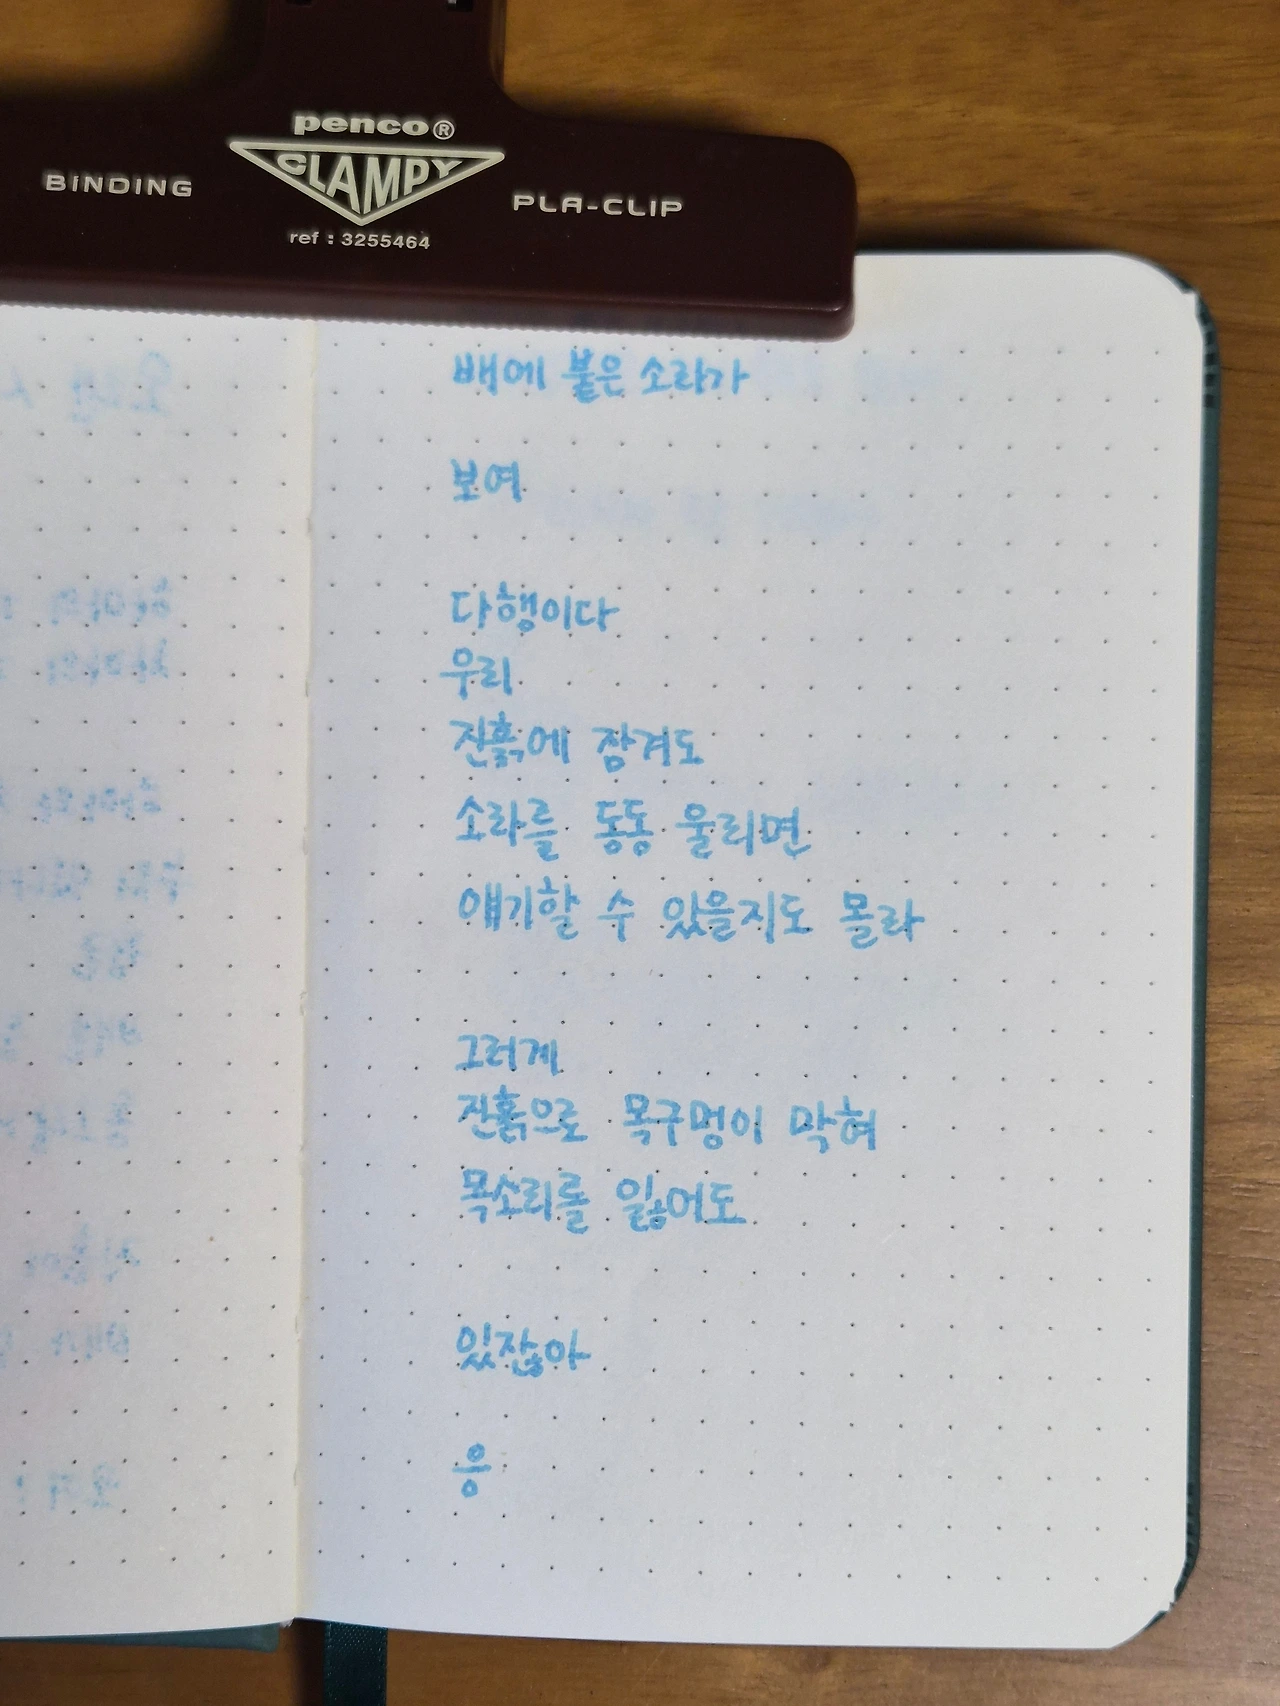 penco®
CLAMPY
BINDING
PLA-CLIP
ref : 3255464
배에 붙은 소라가
보여
다행이다
우리
진흙에 잠겨도
소라를 동동 울리면
얘기할 수 있을지도 몰라
그러게
진흙으로 목구멍이 막혀
목소리를 잃어도
있잖아
응